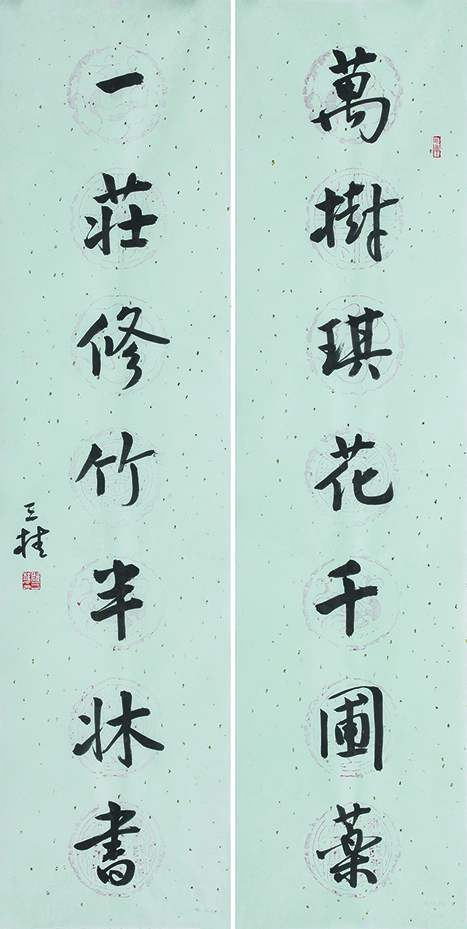 萬樹琪花千圃藥
一莊修竹半牀書
三桂